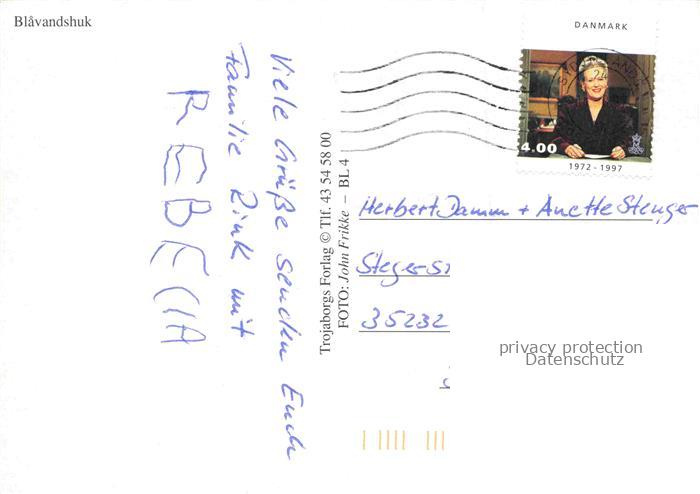 Blåvandshuk
Viele Grüße senden Euch
Familie Rink mit
REBECCA
Trojaborgs Forlag © Tlf. 43 54 58 00
FOTO: John Frikke – BL 4
DANMARK
4.00
1972 - 1997
Herbert Damm + Anette Stenger
35232
privacy protection
Datenschutz